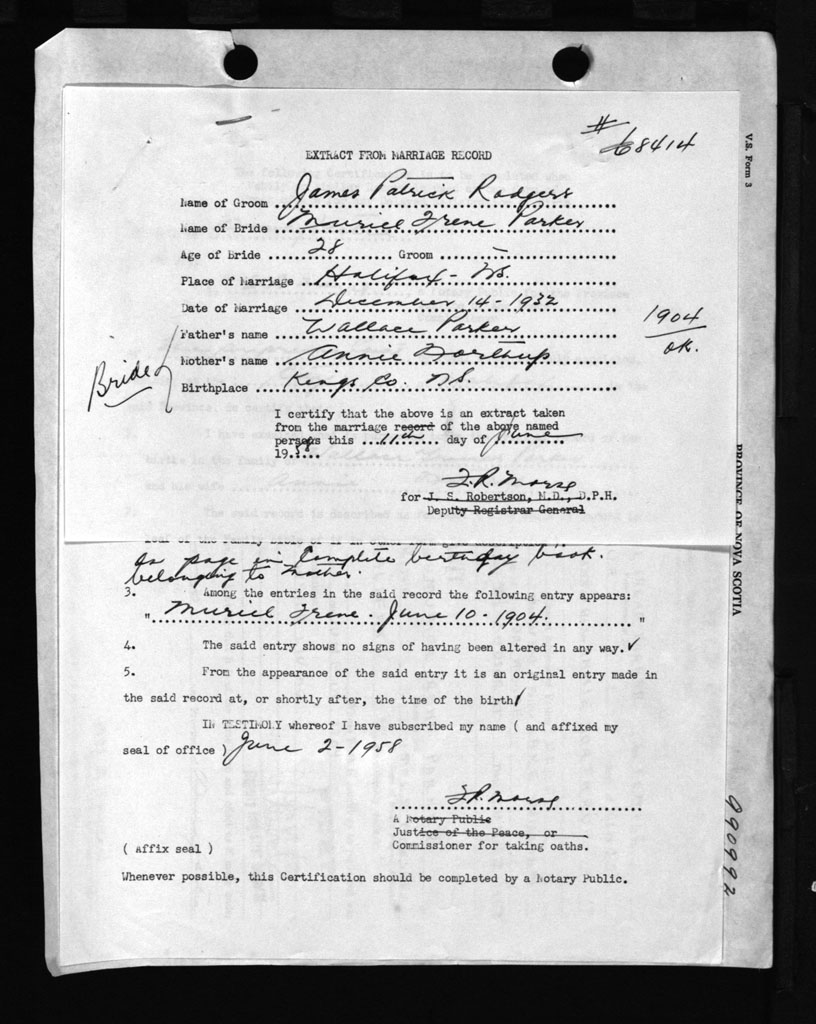 # 68414
EXTRACT FROM MARRIAGE RECORD
Name of Groom ...James Patrick Rodgers
Name of Bride ...Muriel Irene Parker
Age of Bride ......28......... Groom ......–......
Place of Marriage ...Halifax - NS.
Date of Marriage ...December 14 - 1932
Father's name ...Wallace Parker
1904
ok.
Mother's name ...Annie Northup
Bride
Birthplace ...Kings Co. NS.
I certify that the above is an extract taken
from the marriage record of the above named
persons this ...11th... day of June
1958...
F.R. Morse
for J. S. Robertson, M.D., D.P.H.
Deputy Registrar General
as page in Complete birthday book.
belonging to mother.
3. Among the entries in the said record the following entry appears:
" Muriel Irene. June 10 - 1904. "
4. The said entry shows no signs of having been altered in any way. ✓
5. From the appearance of the said entry it is an original entry made in
the said record at, or shortly after, the time of the birth
IN TESTIMONY whereof I have subscribed my name ( and affixed my
seal of office ) June 2 - 1958
F.R. Morse
A Notary Public
Justice of the Peace, or
( Affix seal ) Commissioner for taking oaths.
Whenever possible, this Certification should be completed by a Notary Public.
V.S. Form 3
PROVINCE OF NOVA SCOTIA
990992